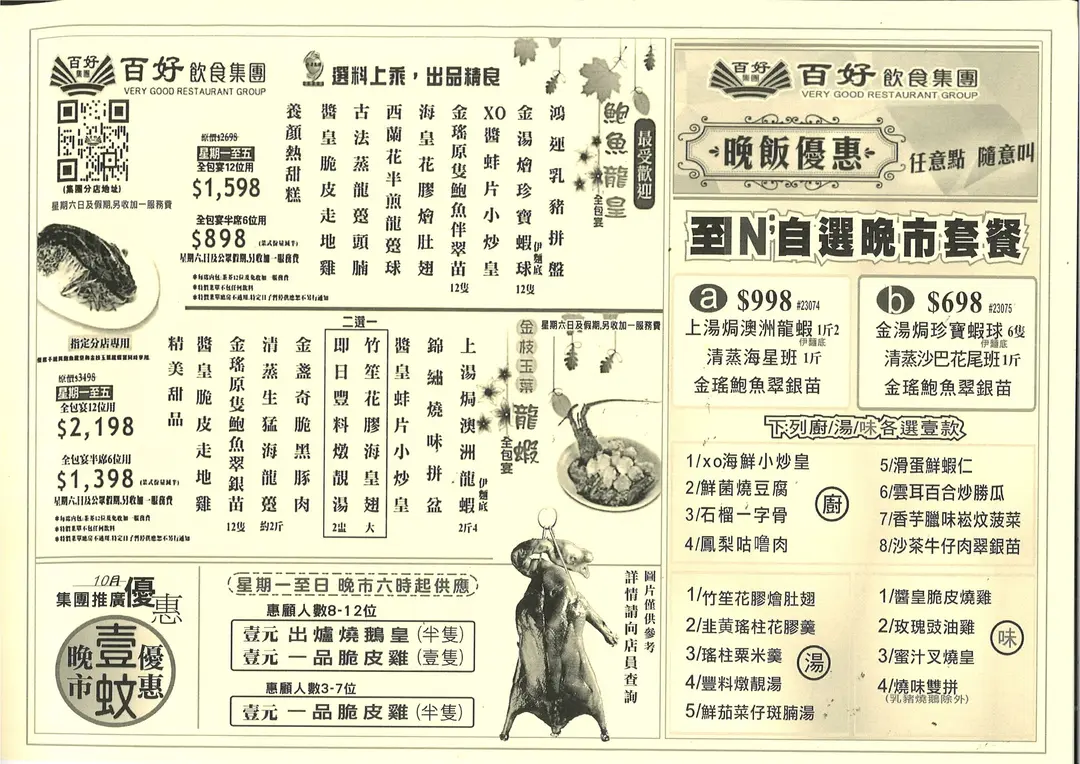 百好
集團
百好 飲食集團
VERY GOOD RESTAURANT GROUP
選料上乘，出品精良
(集團分店地址)
星期六日及假期,另收加一服務費
原價$2698
星期一至五
全包宴12位用
$1,598
全包宴半席6位用
$898 (菜式份量減半)
星期六,日及公眾假期,另收加一服務費
最受歡迎
鮑魚龍皇
全包宴
鴻運乳豬拼盤
金湯燴珍寶蝦球 伊麵底 12隻
XO醬蚌片小炒皇
金瑤原隻鮑魚伴翠苗 12隻
海皇花膠燴肚翅
西蘭花半煎龍躉球
古法蒸龍躉頭腩
醬皇脆皮走地雞
養顏熱甜糕
指定分店專用
原價$3498
星期一至五
全包宴12位用
$2,198
全包宴半席6位用
$1,398 (菜式份量減半)
星期六,日及公眾假期,另收加一服務費
星期六日及假期,另收加一服務費
金枝玉葉
龍蝦
全包宴
上湯焗澳洲龍蝦 伊麵底 2斤4
錦繡燒味拼盆
醬皇蚌片小炒皇
二選一
竹笙花膠海皇翅 大
即日豐料燉靚湯 2盅
金盞奇脆黑豚肉
清蒸生猛海龍躉 約2斤
金瑤原隻鮑魚翠銀苗 12隻
醬皇脆皮走地雞
精美甜品
10月
集團推廣優惠
晚市
壹蚊
優惠
星期一至日 晚市六時起供應
惠顧人數8-12位
壹元 出爐燒鵝皇 (半隻)
壹元 一品脆皮雞 (壹隻)
惠顧人數3-7位
壹元 一品脆皮雞 (半隻)
圖片僅供參考
詳情請向店員查詢
百好
集團
百好 飲食集團
VERY GOOD RESTAURANT GROUP
晚飯優惠
任意點 隨意叫
至N'自選晚市套餐
a $998 #23074
上湯焗澳洲龍蝦 1斤2
伊麵底
清蒸海星班 1斤
金瑤鮑魚翠銀苗
b $698 #23075
金湯焗珍寶蝦球 6隻
伊麵底
清蒸沙巴花尾班1斤
金瑤鮑魚翠銀苗
下列廚/湯/味各選壹款
廚
1/xo海鮮小炒皇
2/鮮菌燒豆腐
3/石榴一字骨
4/鳳梨咕嚕肉
5/滑蛋鮮蝦仁
6/雲耳百合炒勝瓜
7/香芋臘味崧炆菠菜
8/沙茶牛仔肉翠銀苗
湯
1/竹笙花膠燴肚翅
2/韭黃瑤柱花膠羹
3/瑤柱粟米羹
4/豐料燉靚湯
5/鮮茄菜仔斑腩湯
味
1/醬皇脆皮燒雞
2/玫瑰豉油雞
3/蜜汁叉燒皇
4/燒味雙拼
(乳豬燒鵝除外)